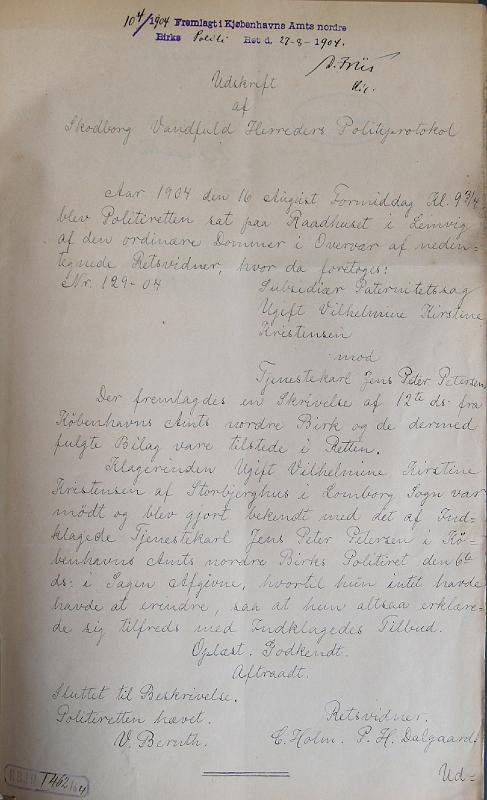 10 4/1904 Fremlagt i Kjøbenhavns Amts nordre
Birks Politi Ret d. 27-8-1904.
D. Friis
Udskrift
af
Skodborg Vandfuld Herreders Politiprotokol
Aar 1904 den 16 August Formiddag Kl. 9 3/4
blev Politiretten sat paa Raadhuset i Lemvig
af den ordinære Dommer i Overvær af neden-
tegnede Retsvidner, hvor da foretoges:
S. Nr. 129-04
Subsidiær Paternitetssag
Ugift Vilhelmine Kirstine
Kristensen
mod
Tjenestekarl Jens Peter Petersen
Der fremlagdes en Skrivelse af 12te ds. fra
Københavns Amts nordre Birk og de dermed
fulgte Bilag vare tilstede i Retten.
Klagerinden Ugift Vilhelmine Kirstine
Kristensen af Storbjerghus i Lomborg Sogn var
mödt og blev gjort bekendt med det af Ind-
klagede Tjenestekarl Jens Peter Petersen i Kö=
benhavns Amts nordre Birks Politiret den 6te
ds. i Sagen Afgivne, hvortil hun intet havde
havde at erindre, saa at hun altsaa erklære-
de sig tilfreds med Indklagedes Tilbud.
Oplæst. Godkendt.
Aftraadt.
Sluttet til Beskrivelse.
Politiretten hævet.
V. Beruth.
Retsvidner.
C. Holm. P. H. Dalgaard.
T462/04
Ud=